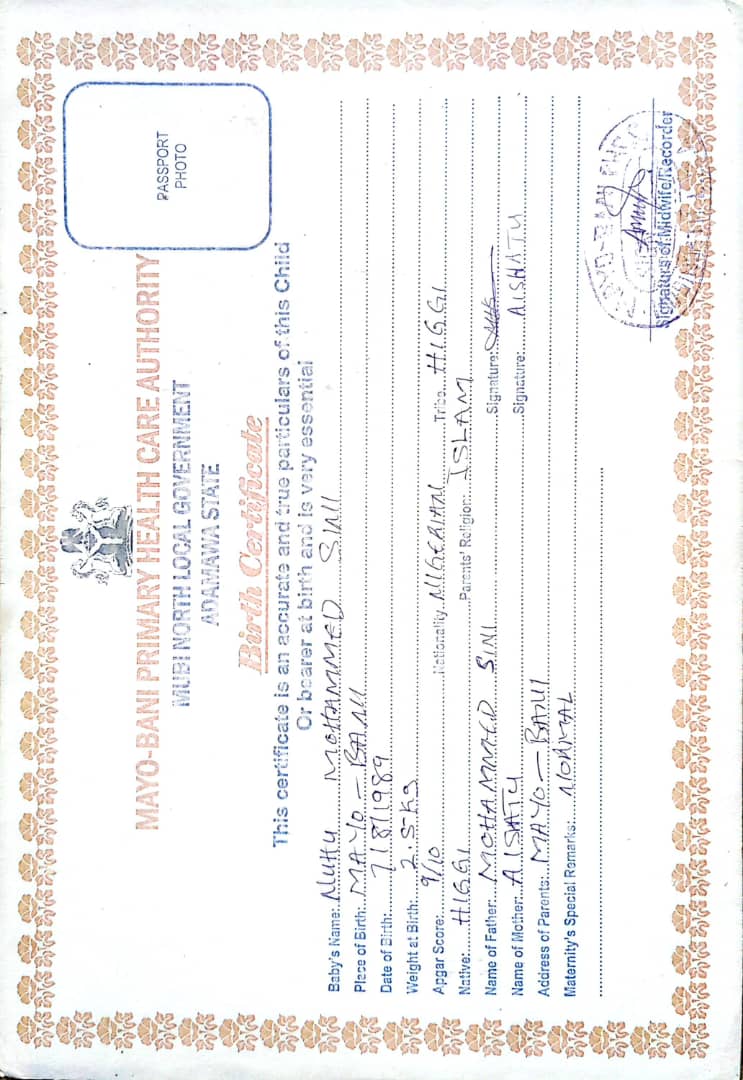 MAYO-BANI PRIMARY HEALTH CARE AUTHORITY
MUBI NORTH LOCAL GOVERNMENT
ADAMAWA STATE
PASSPORT
PHOTO
Birth Certificate
This certificate is an accurate and true particulars of this Child
Or bearer at birth and is very essential
Baby's Name: NUHU MOHAMMED SINI
Place of Birth: MAYO-BANI
Date of Birth: 7/8/1989
Weight at Birth: 2.5KG
Apgar Score: 9/10 Nationality NIGERIAN Tribe HIGGI
Native: HIGGI Parents' Religion: ISLAM
Name of Father: MOHAMMED SINI Signature:
Name of Mother: AISHATU Signature: AISHATU
Address of Parents: MAYO-BANI
Maternity's Special Remarks: NORMAL
Signature of Midwife/Recorder